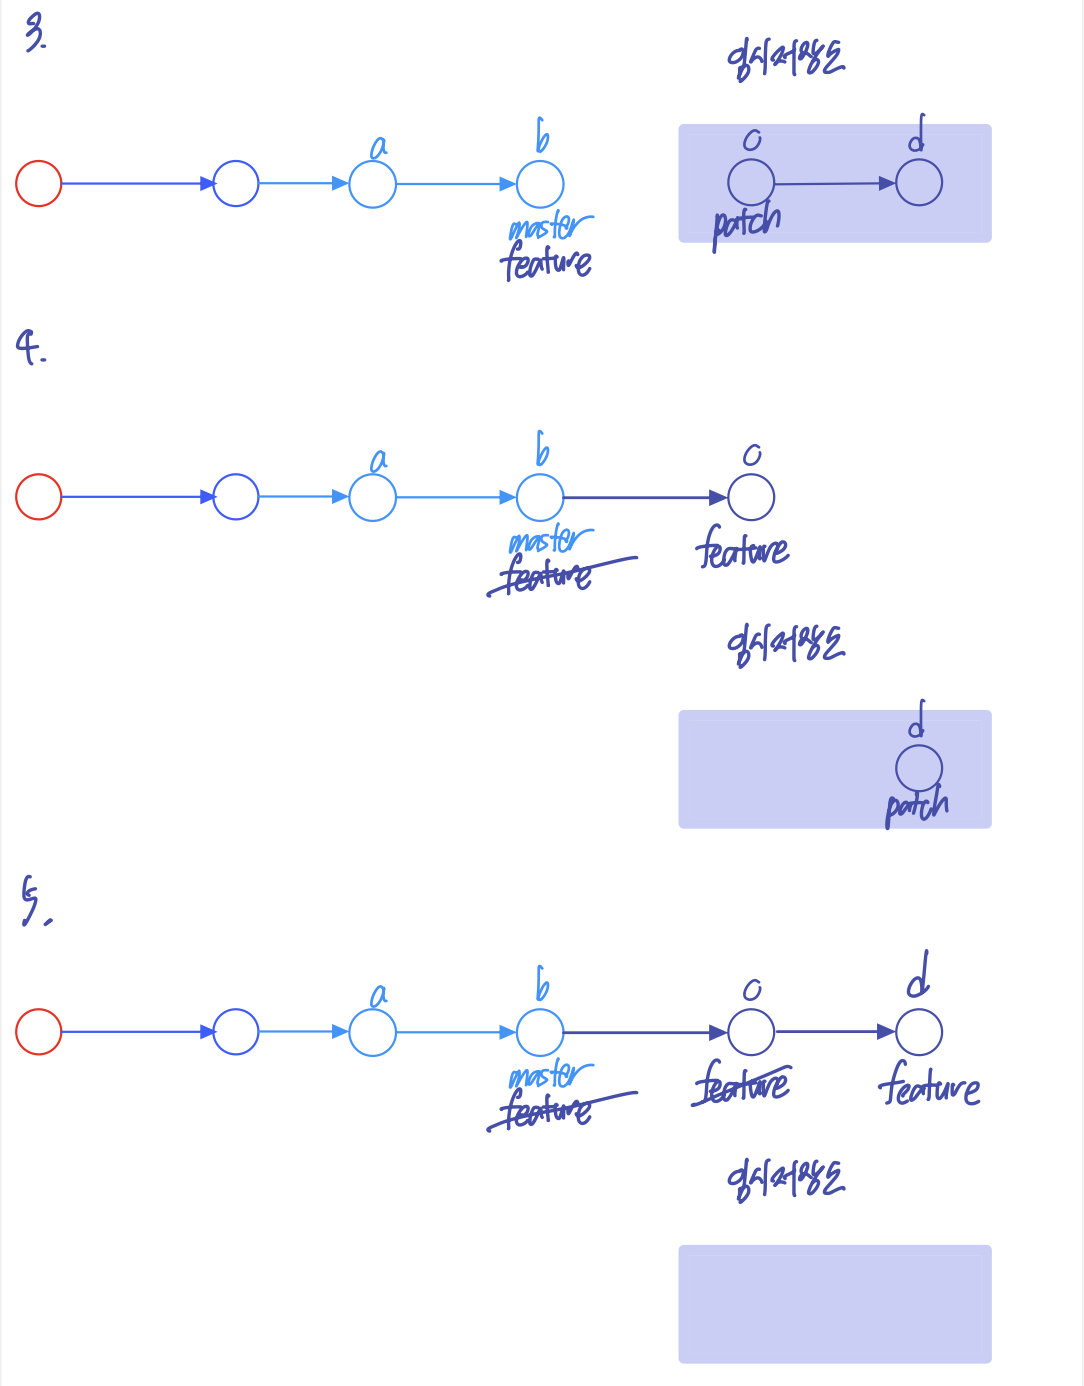 3.
a
b
master
feature
o
d
patch
4.
a
b
o
master
feature
feature
d
patch
5.
a
b
o
d
master
feature
feature
feature